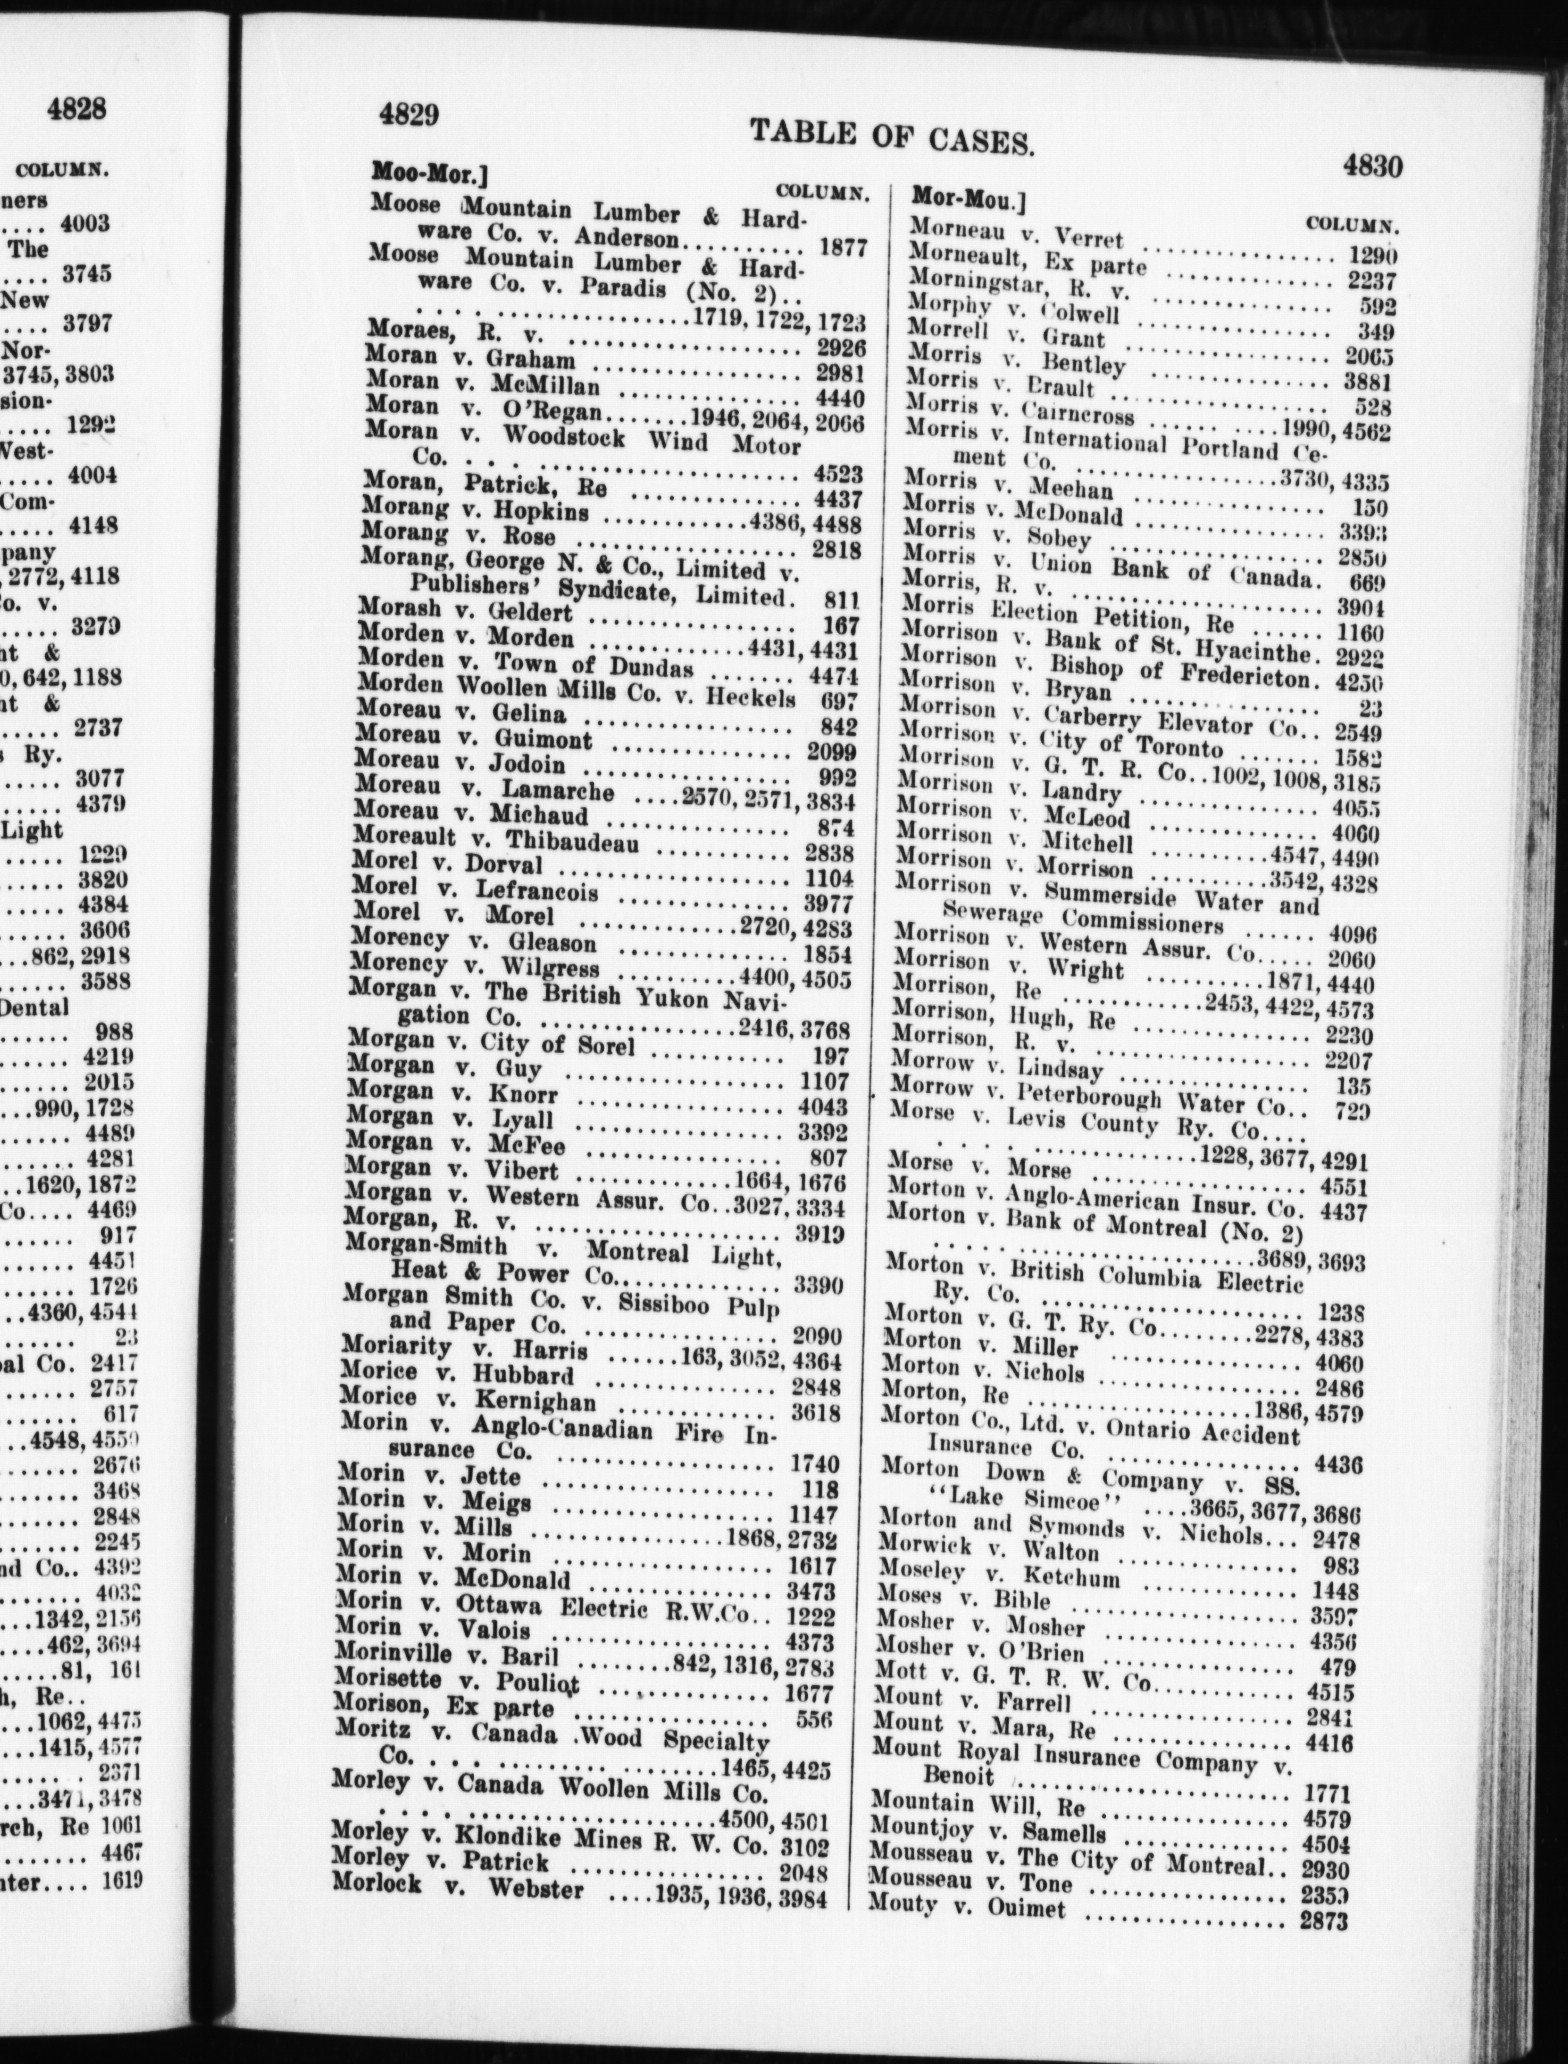 4828
COLUMN.
ners
.... 4003
The
.... 3745
New
.... 3797
Nor-
3745, 3803
sion-
..... 1292
West-
..... 4004
Com-
..... 4148
pany
, 2772, 4118
o. v.
..... 3279
nt &
0, 642, 1188
nt &
..... 2737
s Ry.
..... 3077
..... 4379
Light
..... 1229
...... 3820
...... 4384
...... 3606
...862, 2918
...... 3588
Dental
...... 988
...... 4219
...... 2015
...990, 1728
...... 4489
...... 4281
..1620, 1872
Co.... 4469
...... 917
...... 4451
...... 1726
..4360, 4544
...... 23
oal Co. 2417
...... 2757
...... 617
..4548, 4550
....... 2676
....... 3468
....... 2848
....... 2245
nd Co.. 4392
....... 4032
...1342, 2156
....462, 3694
.....81, 161
h, Re..
...1062, 4475
...1415, 4577
...... 2371
...3471, 3478
rch, Re 1061
....... 4467
nter.... 1619
4829
TABLE OF CASES.
4830
Moo-Mor.]
COLUMN.
Moose Mountain Lumber & Hard-
ware Co. v. Anderson.......... 1877
Moose Mountain Lumber & Hard-
ware Co. v. Paradis (No. 2)..
. . . . .................1719, 1722, 1723
Moraes, R. v. ................... 2926
Moran v. Graham ................. 2981
Moran v. McMillan ............... 4440
Moran v. O'Regan.......1946, 2064, 2066
Moran v. Woodstock Wind Motor
Co. . . . ..................... 4523
Moran, Patrick, Re .............. 4437
Morang v. Hopkins ............4386, 4488
Morang v. Rose .................. 2818
Morang, George N. & Co., Limited v.
Publishers' Syndicate, Limited. 811
Morash v. Geldert ................. 167
Morden v. Morden .............4431, 4431
Morden v. Town of Dundas ....... 4474
Morden Woollen Mills Co. v. Heckels 697
Moreau v. Gelina ................. 842
Moreau v. Guimont ............... 2099
Moreau v. Jodoin ................. 992
Moreau v. Lamarche ....2570, 2571, 3834
Moreau v. Michaud ............... 874
Moreault v. Thibaudeau ........... 2838
Morel v. Dorval ................... 1104
Morel v. Lefrancois .............. 3977
Morel v. Morel .............2720, 4283
Morency v. Gleason .............. 1854
Morency v. Wilgress ..........4400, 4505
Morgan v. The British Yukon Navi-
gation Co. ................2416, 3768
Morgan v. City of Sorel ........... 197
Morgan v. Guy .................. 1107
Morgan v. Knorr ................. 4043
Morgan v. Lyall ................. 3392
Morgan v. McFee ................ 807
Morgan v. Vibert .............1664, 1676
Morgan v. Western Assur. Co..3027, 3334
Morgan, R. v. .................... 3919
Morgan-Smith v. Montreal Light,
Heat & Power Co.............. 3390
Morgan Smith Co. v. Sissiboo Pulp
and Paper Co. ................ 2090
Moriarity v. Harris ......163, 3052, 4364
Morice v. Hubbard ............... 2848
Morice v. Kernighan ............. 3618
Morin v. Anglo-Canadian Fire In-
surance Co. .................. 1740
Morin v. Jette ................... 118
Morin v. Meigs .................. 1147
Morin v. Mills ................1868, 2732
Morin v. Morin .................. 1617
Morin v. McDonald ............... 3473
Morin v. Ottawa Electric R.W.Co.. 1222
Morin v. Valois .................. 4373
Morinville v. Baril ........842, 1316, 2783
Morisette v. Pouliot .............. 1677
Morison, Ex parte ................ 556
Moritz v. Canada Wood Specialty
Co. . . . . ......... ........1465, 4425
Morley v. Canada Woollen Mills Co.
. . . . ....................4500, 4501
Morley v. Klondike Mines R. W. Co. 3102
Morley v. Patrick ................ 2048
Morlock v. Webster ....1935, 1936, 3984
Mor-Mou.]
COLUMN.
Morneau v. Verret ................ 1290
Morneault, Ex parte .............. 2237
Morningstar, R. v. ............... 592
Morphy v. Colwell ................ 349
Morrell v. Grant ................. 2065
Morris v. Bentley ............... 3881
Morris v. Brault .................. 528
Morris v. Cairncross ...... ....1990, 4562
Morris v. International Portland Ce-
ment Co. .................3730, 4335
Morris v. Meehan ................ 150
Morris v. McDonald ................ 3393
Morris v. Sobey .................. 2850
Morris v. Union Bank of Canada. 669
Morris, R. v. ..................... 3904
Morris Election Petition, Re ...... 1160
Morrison v. Bank of St. Hyacinthe. 2922
Morrison v. Bishop of Fredericton. 4250
Morrison v. Bryan ................ 23
Morrison v. Carberry Elevator Co.. 2549
Morrison v. City of Toronto ....... 1582
Morrison v. G. T. R. Co..1002, 1008, 3185
Morrison v. Landry ............... 4055
Morrison v. McLeod .............. 4060
Morrison v. Mitchell ..........4547, 4490
Morrison v. Morrison ..........3542, 4328
Morrison v. Summerside Water and
Sewerage Commissioners ...... 4096
Morrison v. Western Assur. Co..... 2060
Morrison v. Wright ..........1871, 4440
Morrison, Re ............2453, 4422, 4573
Morrison, Hugh, Re ............... 2230
Morrison, R. v. .................. 2207
Morrow v. Lindsay ................ 135
Morrow v. Peterborough Water Co.. 729
Morse v. Levis County Ry. Co....
. . . . ..............1228, 3677, 4291
Morse v. Morse .................. 4551
Morton v. Anglo-American Insur. Co. 4437
Morton v. Bank of Montreal (No. 2)
. . . . .....................3689, 3693
Morton v. British Columbia Electric
Ry. Co. ...................... 1238
Morton v. G. T. Ry. Co........2278, 4383
Morton v. Miller ................ 4060
Morton v. Nichols ................. 2486
Morton, Re ....................1386, 4579
Morton Co., Ltd. v. Ontario Accident
Insurance Co. ................ 4436
Morton Down & Company v. SS.
"Lake Simcoe" ....3665, 3677, 3686
Morton and Symonds v. Nichols... 2478
Morwick v. Walton ............... 983
Moseley v. Ketchum ............. 1448
Moses v. Bible ................... 3597
Mosher v. Mosher ................ 4356
Mosher v. O'Brien ................ 479
Mott v. G. T. R. W. Co............ 4515
Mount v. Farrell ................. 2841
Mount v. Mara, Re ............... 4416
Mount Royal Insurance Company v.
Benoit ....................... 1771
Mountain Will, Re ................ 4579
Mountjoy v. Samells .............. 4504
Mousseau v. The City of Montreal.. 2930
Mousseau v. Tone ................. 2359
Mouty v. Ouimet ................. 2873